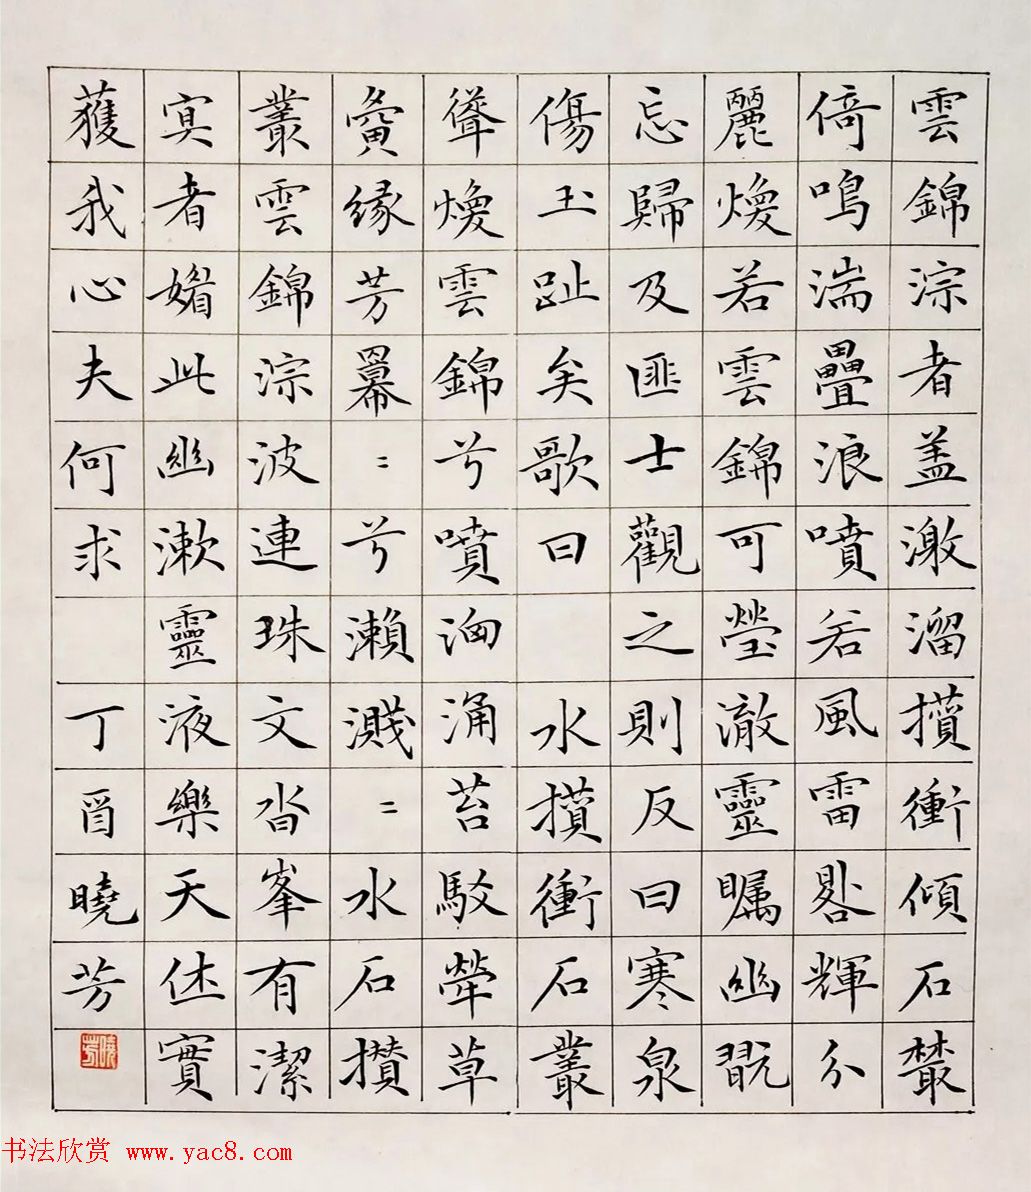 雲錦淙者盖激溜攢衝傾石藂
倚鳴湍疊浪噴若風雷晷輝分
麗煥若雲錦可瑩澈靈矚幽翫
忘歸及匪士觀之則反曰寒泉
傷玉趾矣歌曰 水攢衝石叢
聳煥雲錦兮噴洶涌苔駁犖草
夤緣芳冪〻兮瀨濺〻水石攢
叢雲錦淙波連珠文沓峯有潔
冥者媚此幽漱靈液樂天休實
獲我心夫何求 丁酉曉芳
曉芳
书法欣赏 www.yac8.com